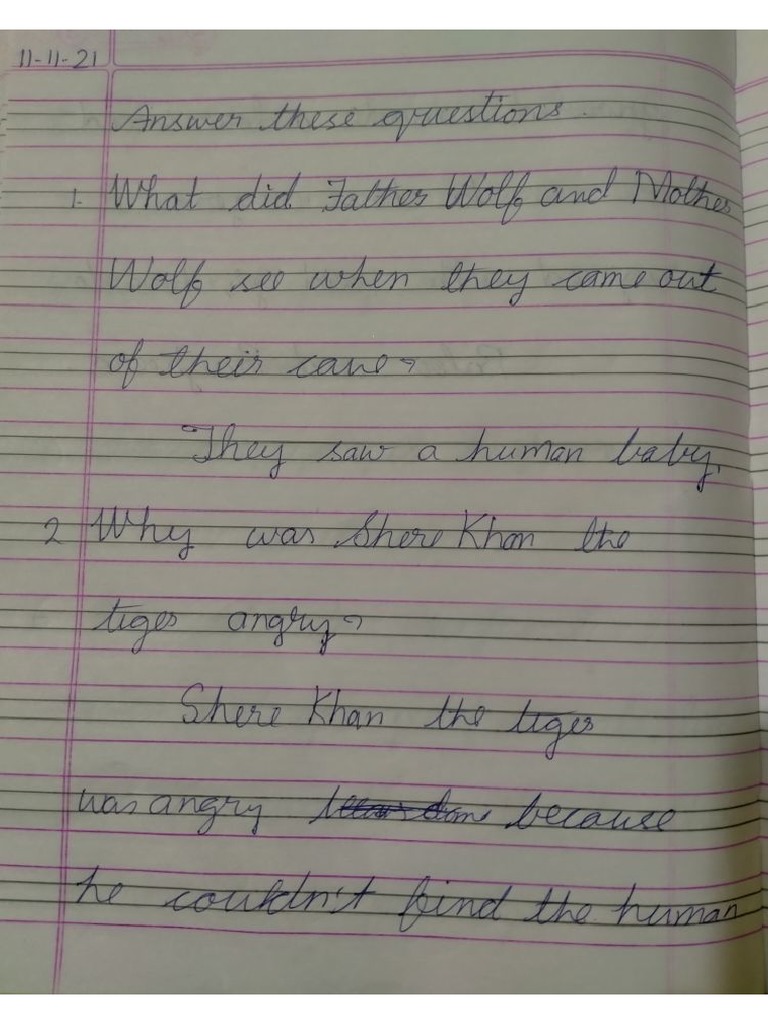 11-11-21
Answer these questions.
1. What did Father Wolf and Mother
Wolf see when they came out
of their cave?
They saw a human baby.
2 Why was Shere Khan the
tiger angry?
Shere Khan the tiger
was angry because
he couldn't find the human